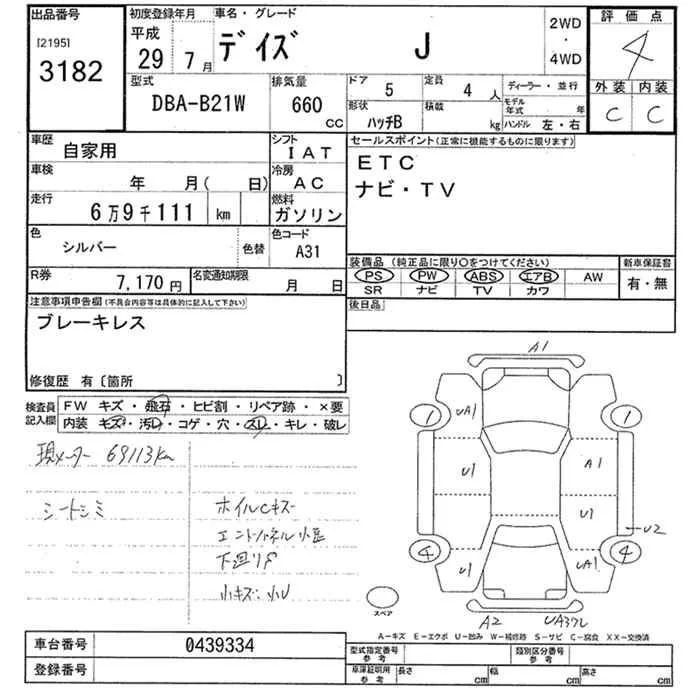 出品番号
[2195]
3182
初度登録年月
平成
29 7月
車名・グレード
デイズ J
2WD
・
4WD
評価点
4
外装 内装
C C
型式
DBA-B21W
排気量
660
cc
ドア
5
定員
4 人
形状
ハッチB
積載
kg
ディーラー・並行
モデル年式 年
ハンドル 左・右
車歴
自家用
シフト
IAT
車検
年 月( 日)
冷房
AC
走行
6万9千111 km
燃料
ガソリン
色
シルバー
色替
色コード
A31
R券
7,170円
名変通知期限
月 日
セールスポイント(正常に機能するものに限ります)
ETC
ナビ・TV
装備品 (純正品に限り○をつけてください)
PS PW ABS エアB AW
SR ナビ TV カワ
新車保証書
有・無
後日品
注意事項申告欄(不具合内容等は具体的に記入して下さい)
ブレーキレス
修復歴 有〔箇所 〕
検査員
記入欄
FW キズ・飛石・ヒビ割・リペア跡・×要
内装 キズ・汚レ・コゲ・穴・スレ・キレ・破レ
現メーター 69113km
シートシミ
ホイルCキズ
下廻りS
小キズ・小U
A1
1 UA1 1
U1 A1
U1
U2
4 U1 UA1 4
スペア
A2 UA37L
A-キズ E-エクボ U-凹み W-補修跡 S-サビ C-腐食 XX-交換済
車台番号
0439334
登録番号
型式指定番号
参考
類別区分番号
参考
車庫証明用
参考
長さ cm
幅 cm
高さ cm